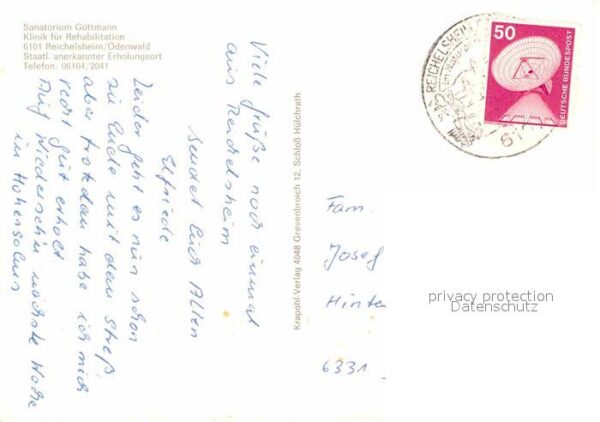 Sanatorium Göttmann
Klinik für Rehabilitation
6101 Reichelsheim/Odenwald
Staatl. anerkannter Erholungsort
Telefon: 06164/2041
Viele Grüße noch einmal
aus Reichelsheim
sendet Euch Allen
Elfriede
Leider geht es nun schon
zu Ende mit dem Streß
aber trotzdem habe ich mich
recht gut erholt
Auf Wiedersehn nächste Woche
in Hohensolms
Krapohl-Verlag 4048 Grevenbroich 12, Schloß Hülchrath
REICHELSHEIM
50
DEUTSCHE BUNDESPOST
Fam.
Josef
Hinter
6331
privacy protection
Datenschutz